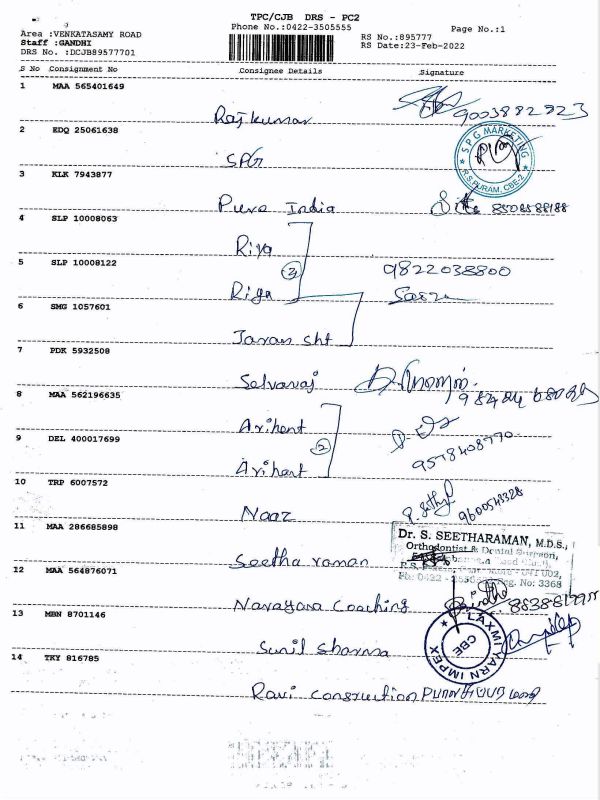 TPC/CJB DRS - PC2
Phone No.:0422-3505555
Page No.:1
Area :VENKATASAMY ROAD
Staff :GANDHI
DRS No. :DCJB89577701
RS No.:895777
RS Date:23-Feb-2022
S No Consignment No Consignee Details Signature
1 MAA 565401649
Rajkumar 9003882923
2 EDQ 25061638
SPG
SPG MARKETING
R.S.PURAM, CBE-2
3 KLK 7943877
Pure India
4 SLP 10008063
Riya
5 SLP 10008122
9822038800
Riya
6 SMG 1057601
Javan sht
7 PDK 5932508
Selvaraj
8 MAA 562196635
Arihant
9 DEL 400017699
9578408770
Arihant
10 TRP 6007572
Naaz 9600543328
11 MAA 286685898
Dr. S. SEETHARAMAN, M.D.S.,
Orthodontist & Dental Surgeon,
Seetha raman
12 MAA 564876071
Reg. No: 3368
Narayana Coaching
13 MBN 8701146
LAXMI YARN IMPEX
CBE
Sunil Sharma
14 TKY 816785
Ravi construction